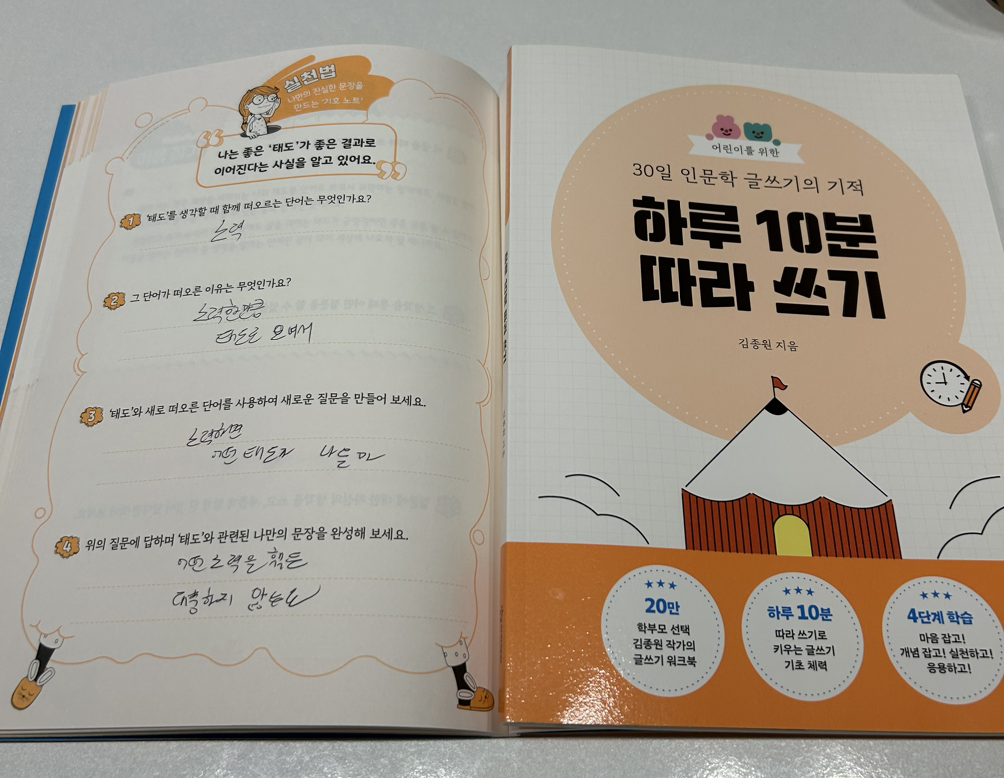 실천법
나만의 진실한 문장을
만드는 '기호 노트'
나는 좋은 '태도'가 좋은 결과로
이어진다는 사실을 알고 있어요.
1 '태도'를 생각할 때 함께 떠오르는 단어는 무엇인가요?
노력
2 그 단어가 떠오른 이유는 무엇인가요?
노력한만큼
태도로 보여서
3 '태도'와 새로 떠오른 단어를 사용하여 새로운 질문을 만들어 보세요.
노력하면
어떤 태도가
4 위의 질문에 답하며 '태도'와 관련된 나만의 문장을 완성해 보세요.
어떤 노력을 하든
않는다
어린이를 위한
30일 인문학 글쓰기의 기적
하루 10분
따라 쓰기
김종원 지음
20만
학부모 선택
김종원 작가의
글쓰기 워크북
하루 10분
따라 쓰기로
키우는 글쓰기
기초 체력
4단계 학습
마음 잡고!
개념 잡고! 실천하고!
응용하고!